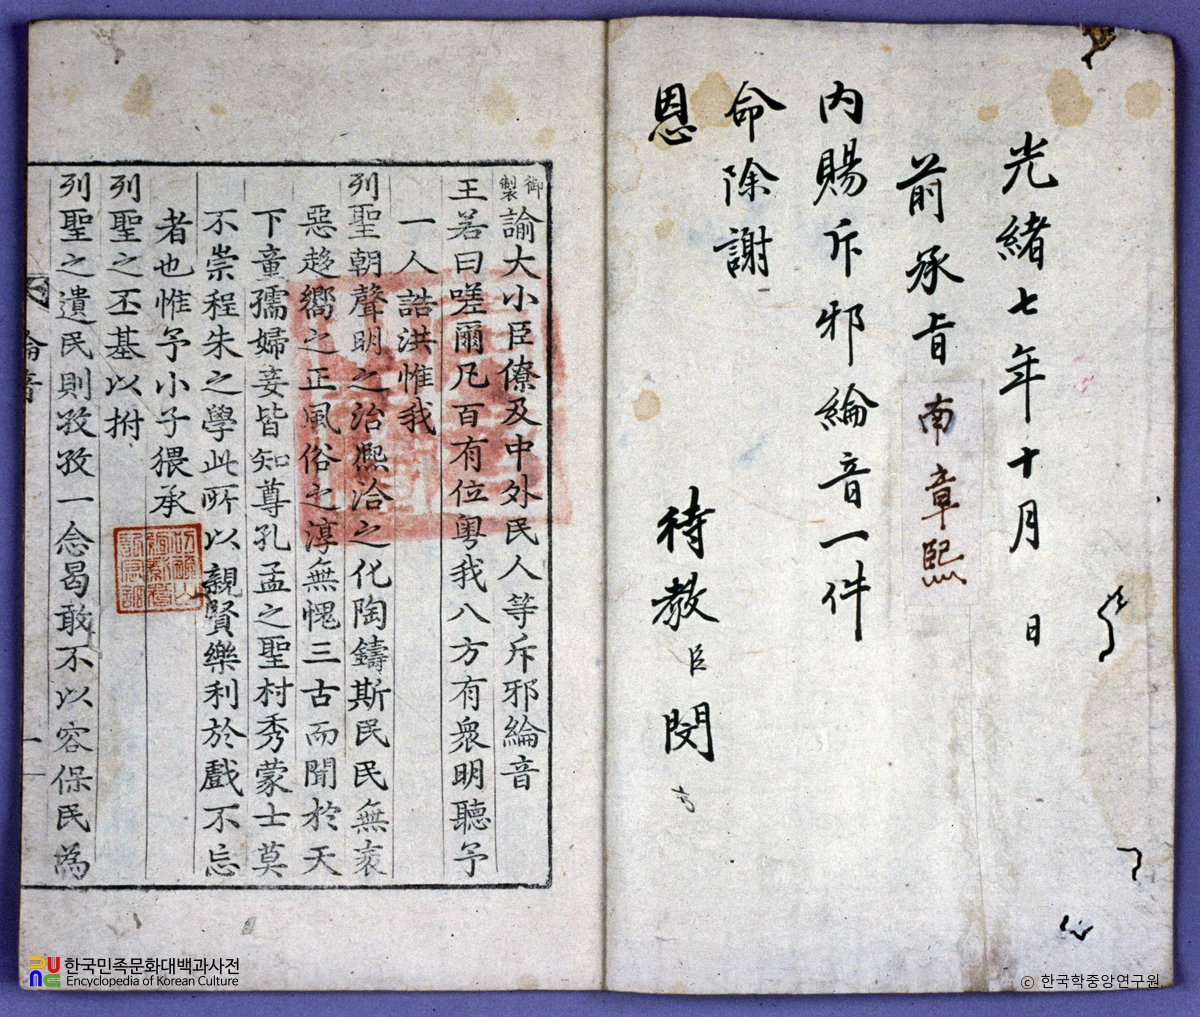 光緒七年十月 日
前承旨南章熙
內賜斥邪綸音一件
命除謝
恩
待教臣閔
御製
諭大小臣僚及中外民人等斥邪綸音
王若曰嗟爾凡百有位粤我八方有衆明聽予
一人誥洪惟我
列聖朝聲明之治熙洽之化陶鑄斯民民無袤
惡趍嚮之正風俗之淳無愧三古而聞於天
下童孺婦妾皆知尊孔孟之聖村秀蒙士莫
不崇程朱之學此所以親賢樂利於戲不忘
者也惟予小子猥承
列聖之丕基以拊
列聖之遺民則孜孜一念曷敢不以容保民為
綸音
一
한국민족문화대백과사전
Encyclopedia of Korean Culture
ⓒ 한국학중앙연구원